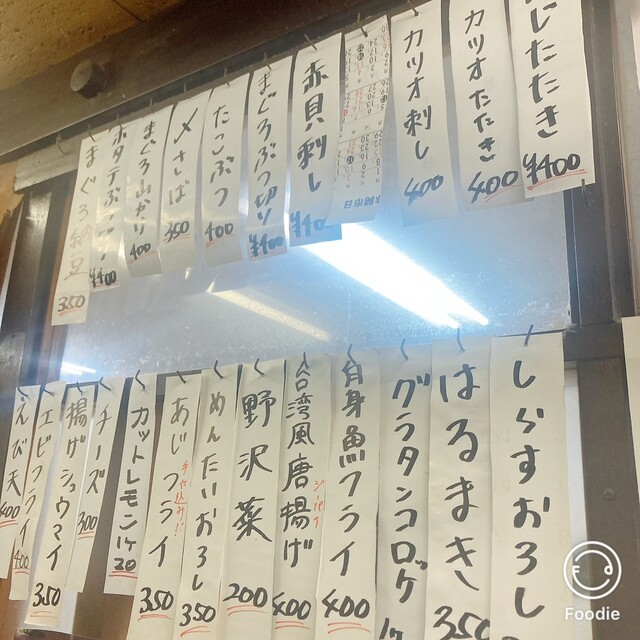 じたたき ¥400
カツオたたき 400
カツオ刺し 400
赤貝刺し ¥40
まぐろぶつ切り ¥400
たこぶつ 400
〆さば 350
まぐろ山かけ 400
ホタテ ¥400
まぐろ納豆 350
しらすおろし
はるまき 350
グラタンコロッケ 1ケ
白身魚フライ 400
台湾風唐揚げ 400
ジーパイ
野沢菜 200
めんたいおろし 350
あじフライ 350
手仕込み!!
カットレモン1ケ 20
チーズ 300
揚げシュウマイ
エビフライ 350
えび天 400
400
Foodie